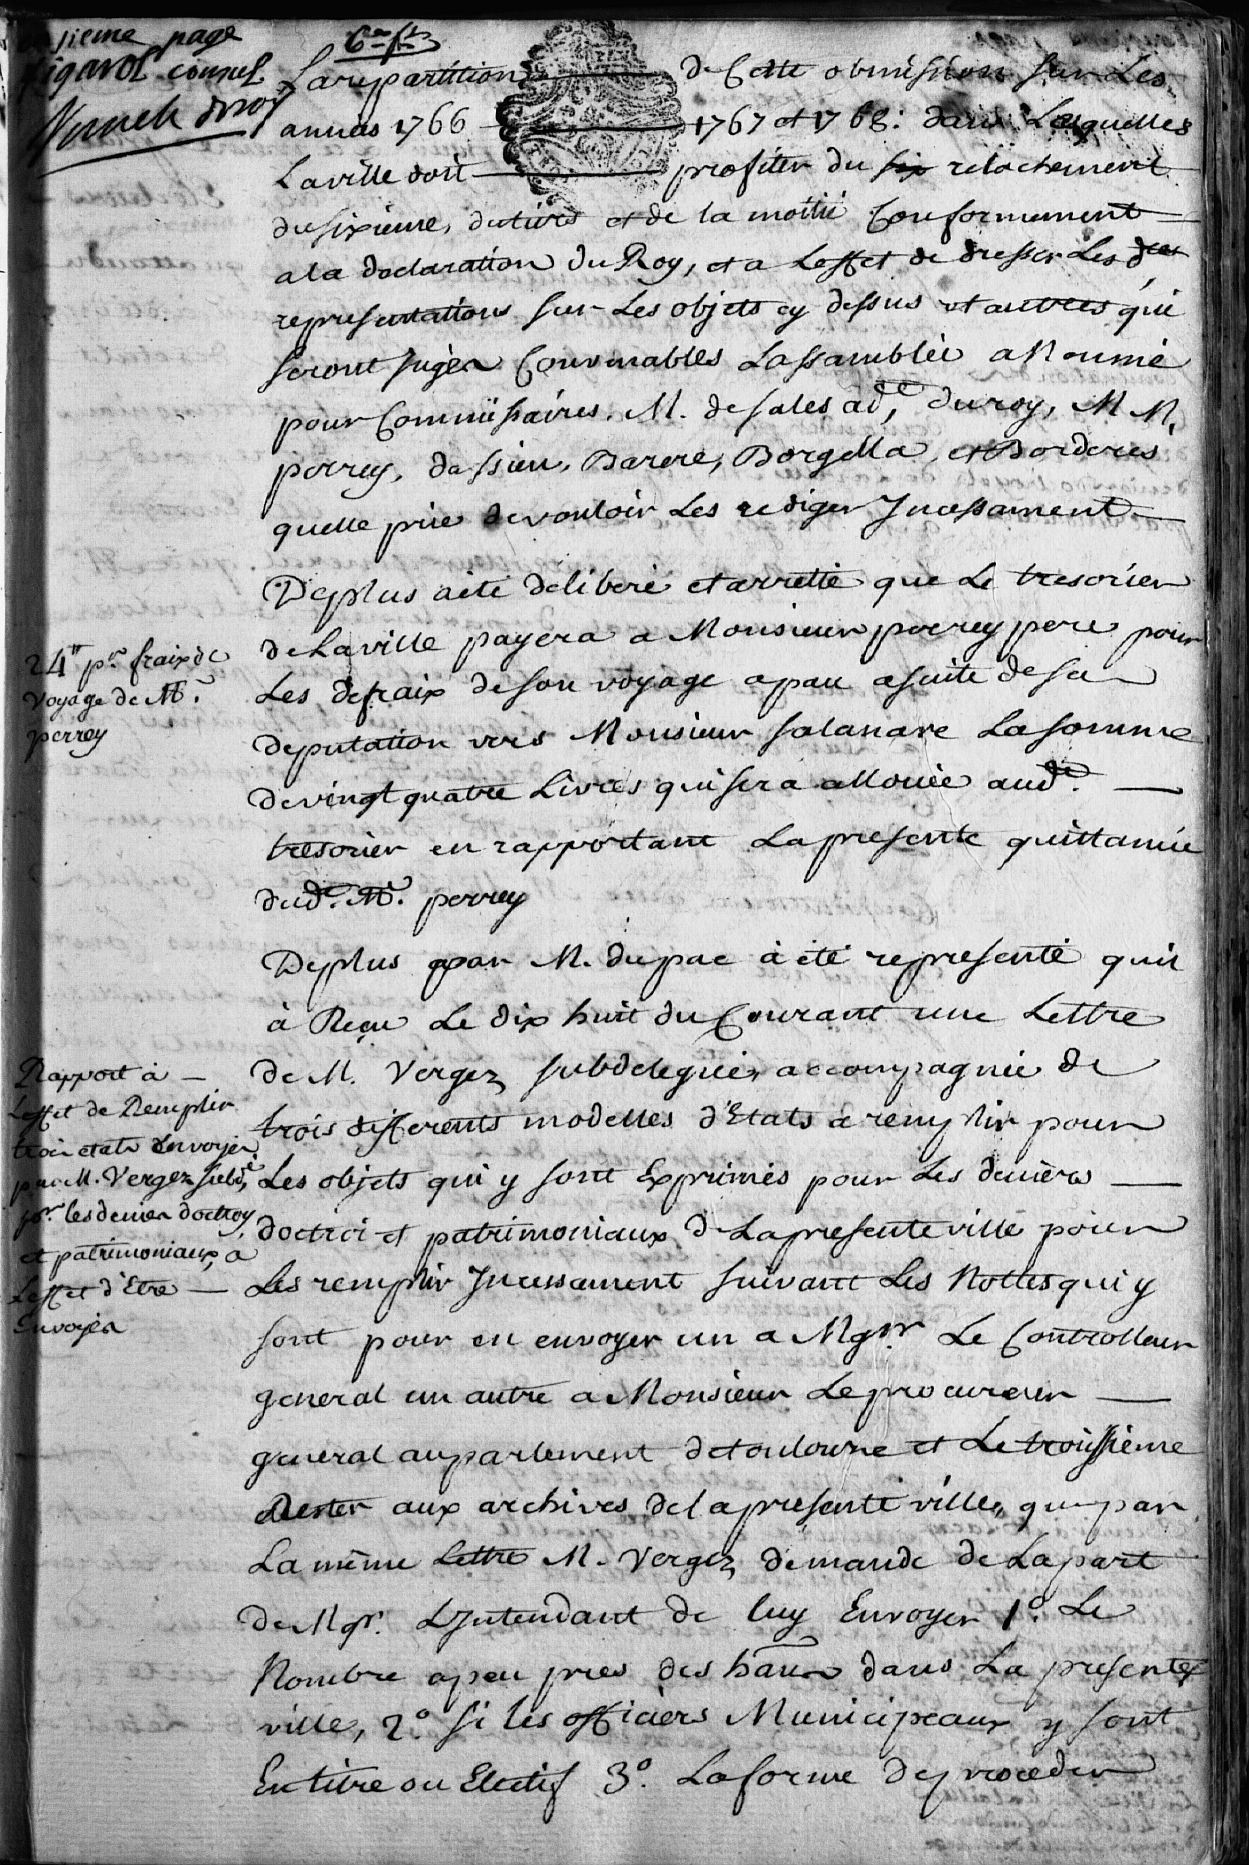 sieme page
figarol consul
6me f.
La repartition de Cette obmission sur Les
annés 1766 1767 et 1768: dans Lesquelles
La ville doit profiter du six relachement
du sixieme, du tiers et de la moitié Conformement
a la declaration du Roy, et a Leffet de dresser Les dtes
representations sur Les objets cy dessus et autres qui
seront jugés Convenables Lassamblée a Nommé
pour Commissaires. M. de sales ade, du roy, M M.
perrey, dassieu, Barere, Borgella, et Borderes
quelle prie de vouloir Les rediger Incessament
De plus a été deliberé et arretté que Le tresorier
de La ville payera a Monsieur perrey pere pour
Les defraix de son voyage a pau a suite de sa
deputation vers Monsieur salanave La somme
de vingt quatre Livres qui sera allouée audt.
tresorier en rapportant La presente quittancée
dudt. Mr. perrey
De plus par M. dupac à été representé quil
à Reçu Le dix huit du Courant une Lettre
de M. Vergez subdelegué, accompagnée de
trois differents modelles d'Etats a remplir pour
Les objets qui y sont Exprimés pour Les deniers
doctroi et patrimoniaux de La presente ville pour
Les remplir Incessament suivant Les Nottes qui y
sont pour en envoyer un a Mgnr. Le Controlleur
general un autre a Monsieur Le procureur
general au parlement de toulouse et Le troissieme
Rester aux archives de la presente ville, que par
La même Lettre M. Vergez demande de La part
de Mgr. LIntendant de luy Envoyer 1º. Le
Nombre a peu pres des hans dans La presente
ville, 2º. si les officiers Municipeaux y sont
En titre ou Electif 3º. La forme de proceder
24tt pr. fraix de
voyage de Mr.
perrey
Rapport à
Leffet de Remplir
trois etats Envoyés
par M. Vergez subdé,
pr. les deniers doctroy,
et patrimoniaux, a
Leffet d'Etre
Envoyés